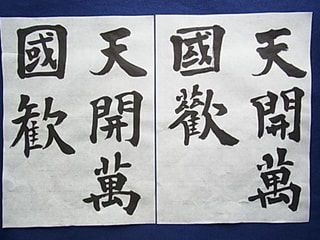 天開萬
國歡
天開萬
國歓